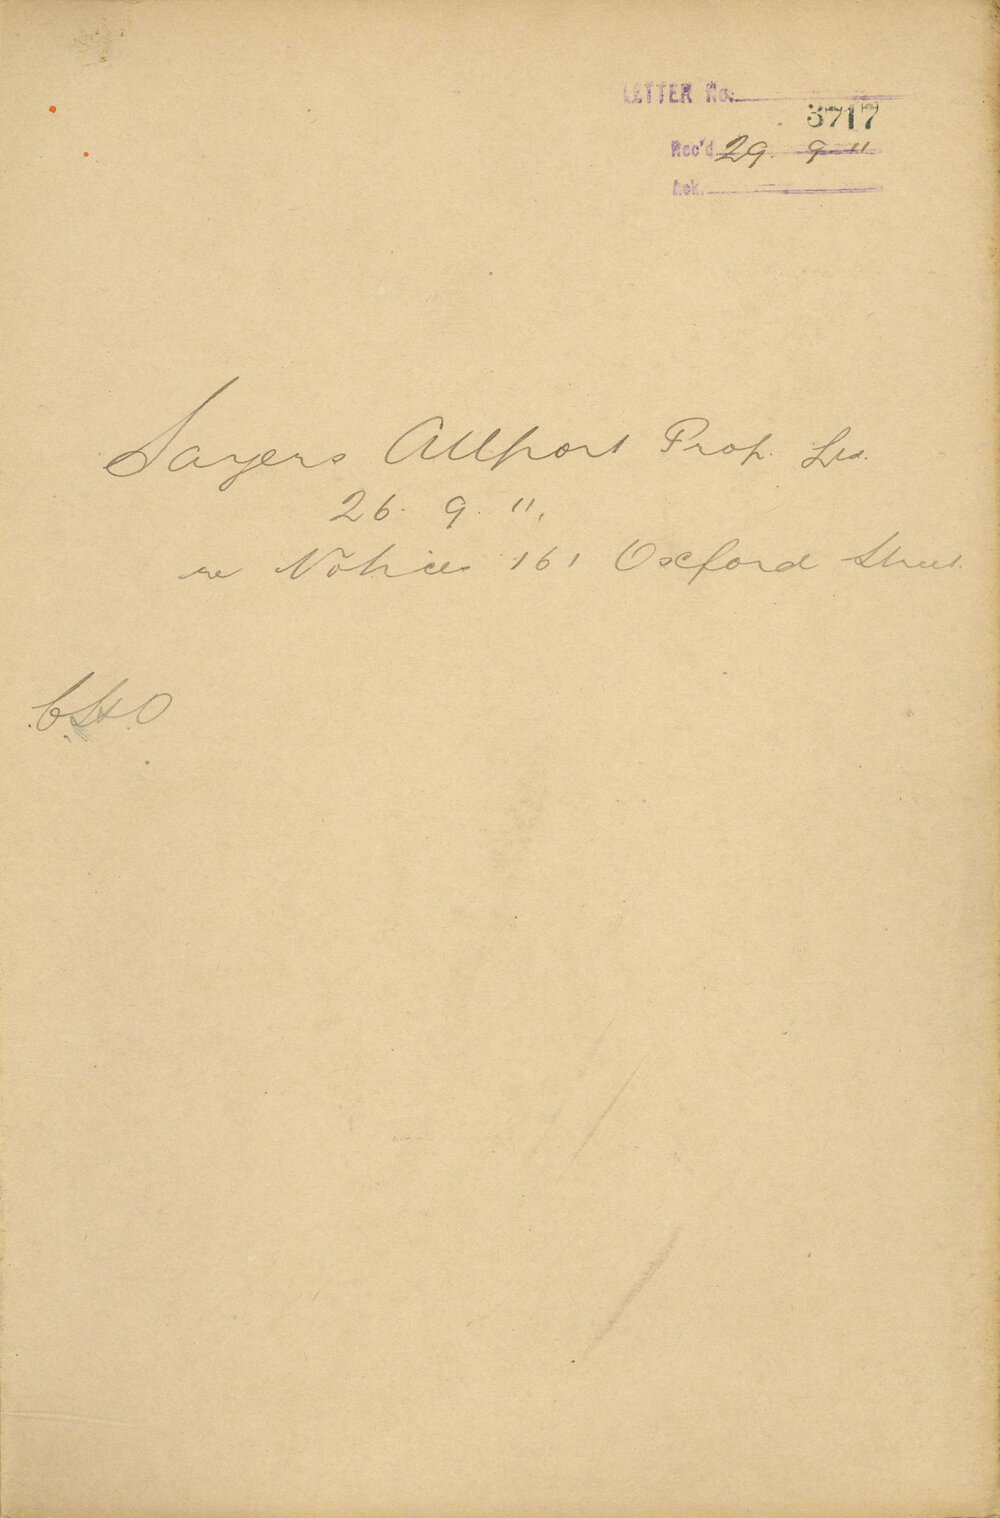 LETTER No.
3717
Rec'd 29. 9 11.
Ack.
Sayers Allport Prop. Ld.
26. 9. 11.
re Notices 161 Oxford Street.
C.H.O